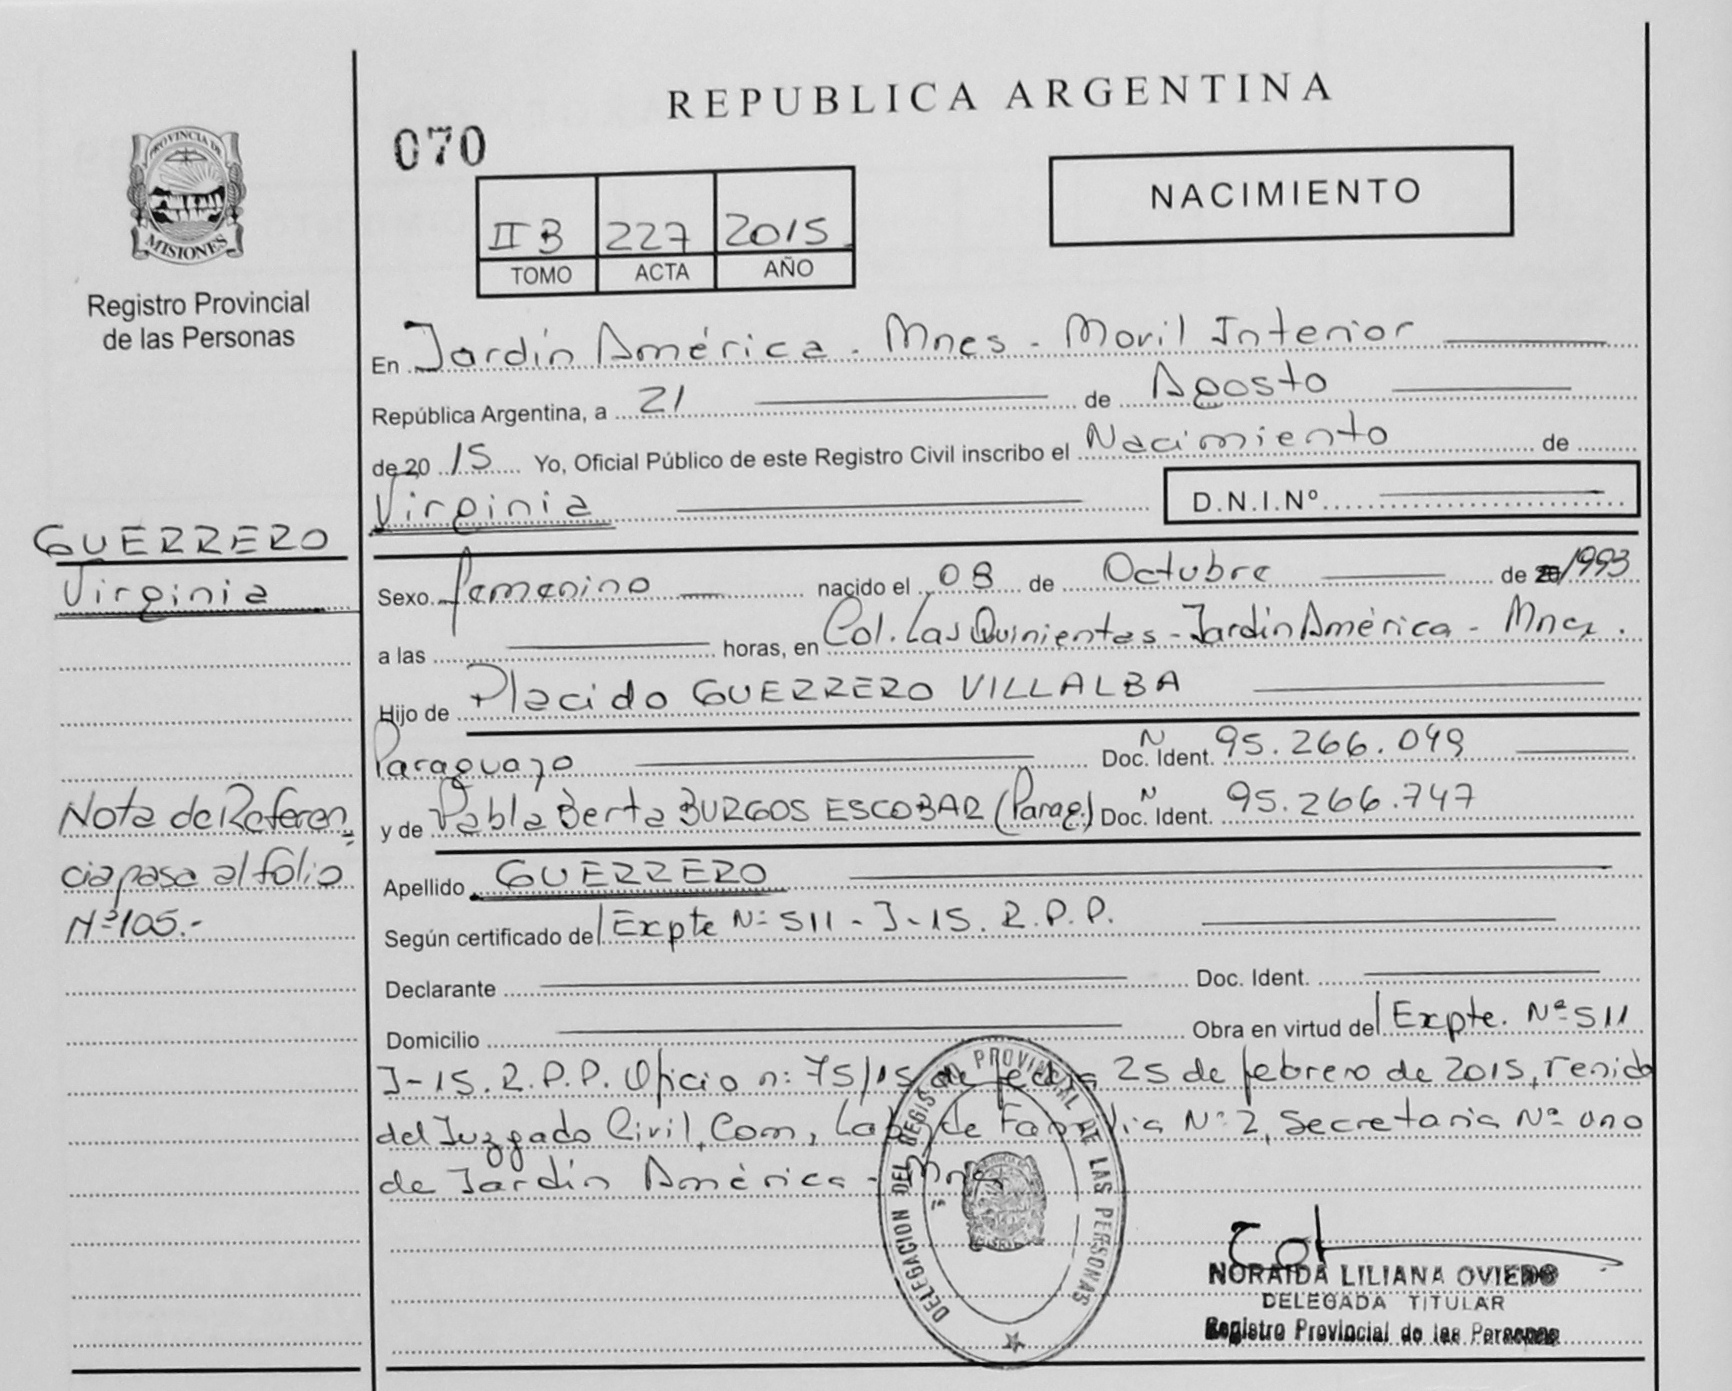 REPUBLICA ARGENTINA
070
NACIMIENTO
II B 227 2015
TOMO ACTA AÑO
PROVINCIA DE
MISIONES
Registro Provincial
de las Personas
En Jardín América - Mnes - Moril Interior
República Argentina, a 21 de Agosto
de 20 15 Yo, Oficial Público de este Registro Civil inscribo el Nacimiento de
Virginia D.N.I.Nº
GUERRERO
Virginia
Sexo femenino nacido el 08 de Octubre de 1993
a las horas, en Col. Las Quinientas - Jardín América - Mnes.
Hijo de Placido GUERRERO VILLALBA
Paraguayo Doc. N Ident. 95.266.049
y de Pabla Berta BURGOS ESCOBAR (Parag.) Doc. N Ident. 95.266.747
Apellido GUERRERO
Según certificado del Expte Nº 511 - J - 15. R.P.P.
Declarante Doc. Ident.
Domicilio Obra en virtud del Expte. Nº 511
J-15. R.P.P. Oficio nº 75/15 de fecha 25 de febrero de 2015, venido
del Juzgado Civil, Com, Lab, de Familia Nº 2, Secretaria Nº uno
de Jardín América - Mnes
Nota de Referen
cia pasa al folio
Nº 105.-
DELEGACION DEL REGISTRO PROVINCIAL DE LAS PERSONAS
NORAIDA LILIANA OVIEDO
DELEGADA TITULAR
Registro Provincial de las Personas